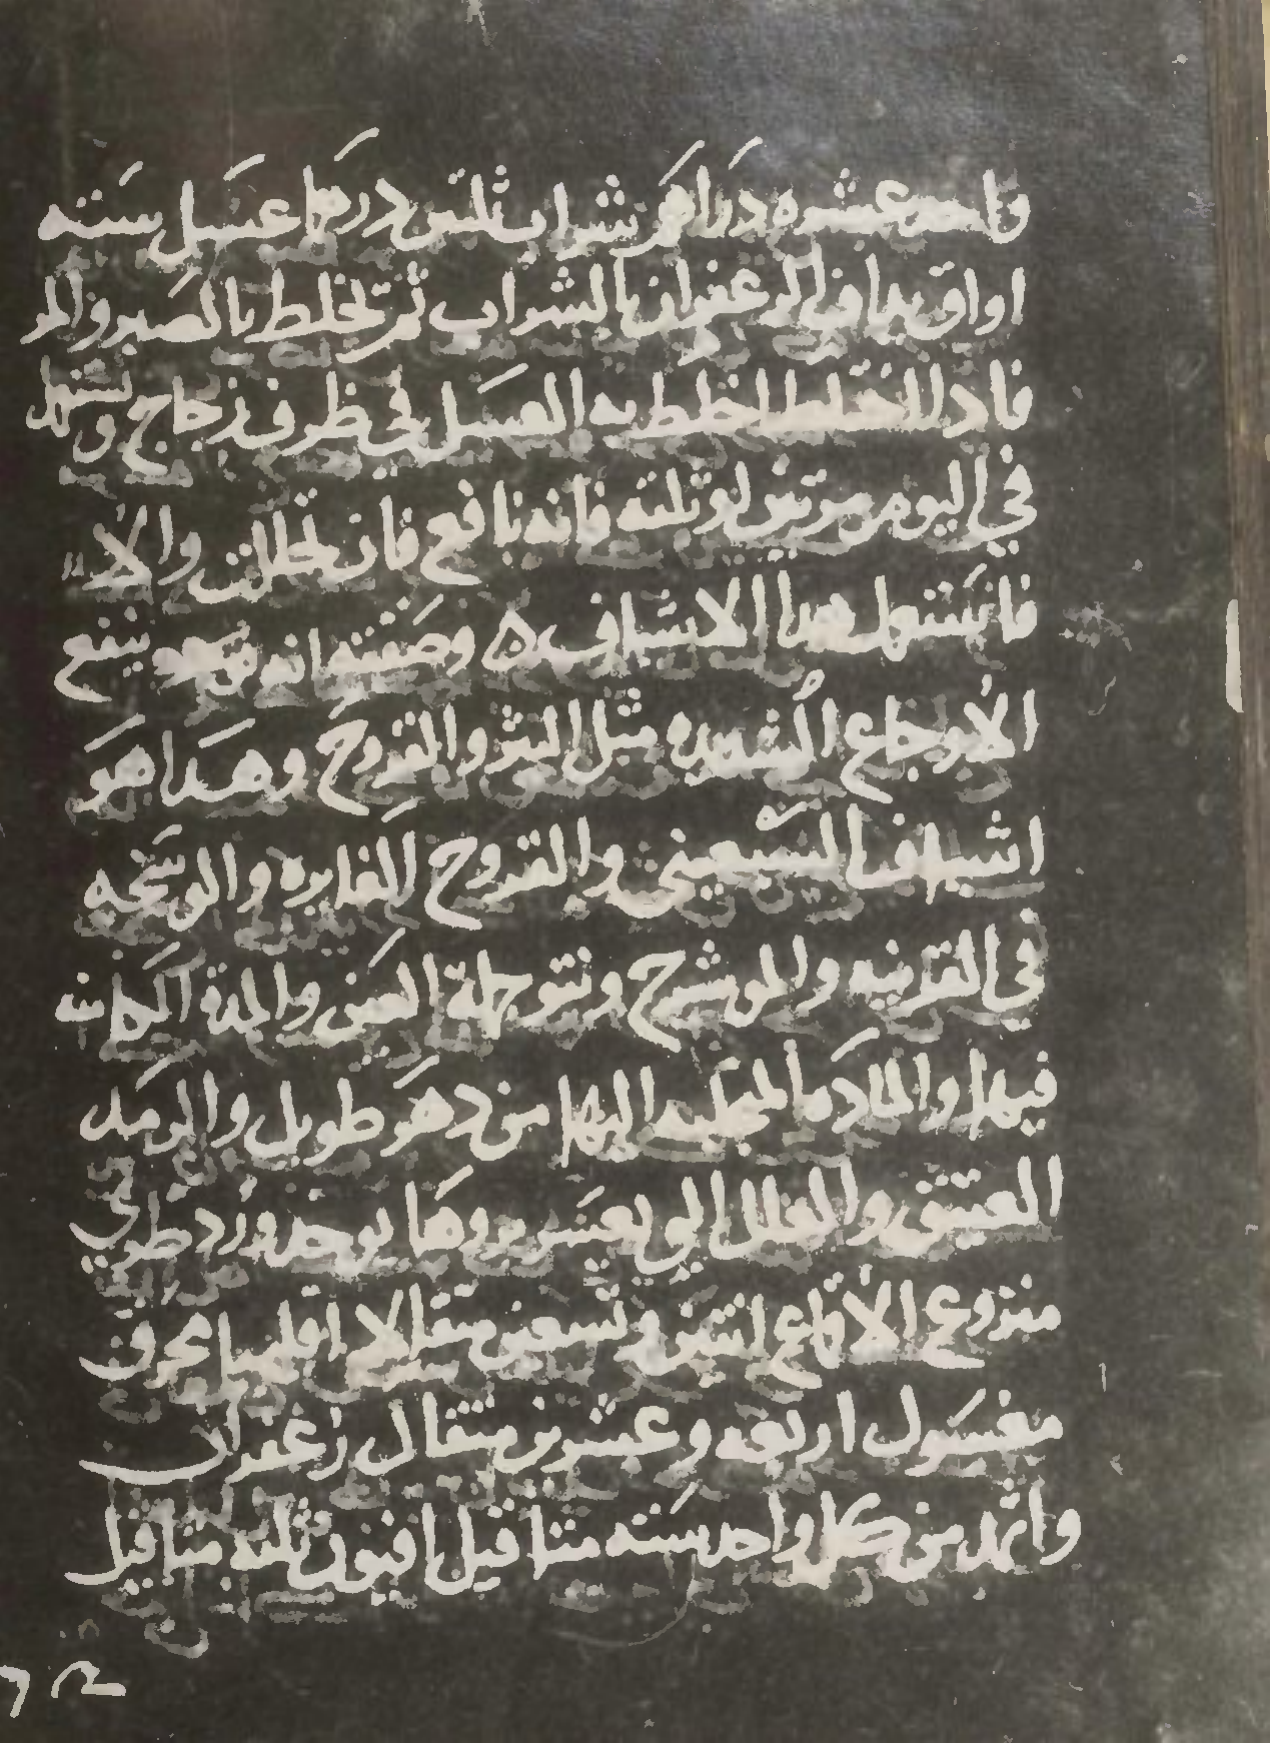 واحد عشره دراهم شراب ثلثين درهما عسل سته
اواق يداف الزعفران بالشراب ثم تخلط بالصبر والمر
فاذا اختلط اخلط به العسل في ظرف زجاج ويستعمل
في اليوم مرتين او ثلثه فانه نافع فان تحللت والا
فاستعمل هذا الاشياف ه وصفته انه ينفع
الاوجاع الشديده مثل البثر والقروح وهذا هو
اشياف السبعيني والقروح الغايره والوسخه
في القرنيه والموشرج ونتو جملة العين والمدة الكامنه
فيها والماده المنجلبه اليها من دهر طويل والرمد
العتيق والعلل الي يعسر بروها يوخد ورد طري
منزوع الاقماع اثنين وتسعين مثقالا اقليميا محرق
مغسول اربعه وعشرين مثقال زعفران
واثمد من كل واحد سته مثاقيل افيون ثلثه مثاقيل